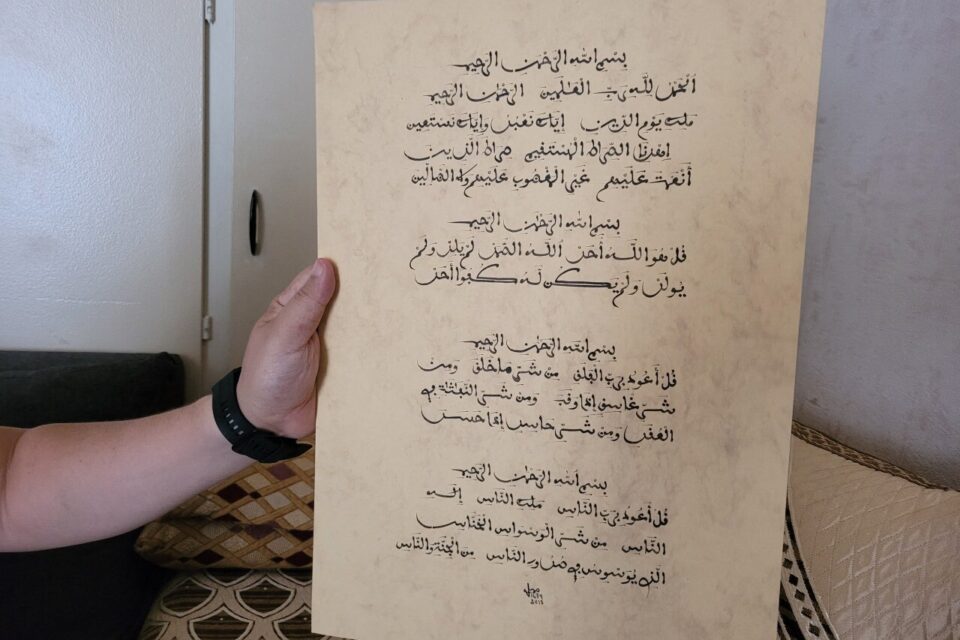 بسم الله الرحمن الرحيم
الحمد لله رب العلمين الرحمن الرحيم
ملك يوم الدين إياك نعبد وإياك نستعين
اهدنا الصراط المستقيم صراط الذين
أنعمت عليهم غير المغضوب عليهم ولا الضالين
بسم الله الرحمن الرحيم
قل هو الله أحد الله الصمد لم يلد ولم
يولد ولم يكن له كفوا أحد
بسم الله الرحمن الرحيم
قل أعوذ برب الفلق من شر ما خلق ومن
شر غاسق إذا وقب ومن شر النفثت في
العقد ومن شر حاسد إذا حسد
بسم الله الرحمن الرحيم
قل أعوذ برب الناس ملك الناس إله
الناس من شر الوسواس الخناس
الذي يوسوس في صدور الناس من الجنة والناس